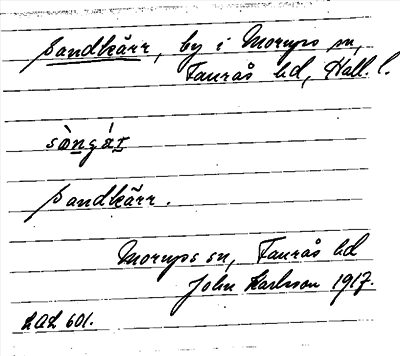 Sandkärr, by i Morups sn,
Faurås hd, Hall. l.
Sandkärr.
Morups sn, Faurås hd
John Karlsson 1917.
LAL 601.